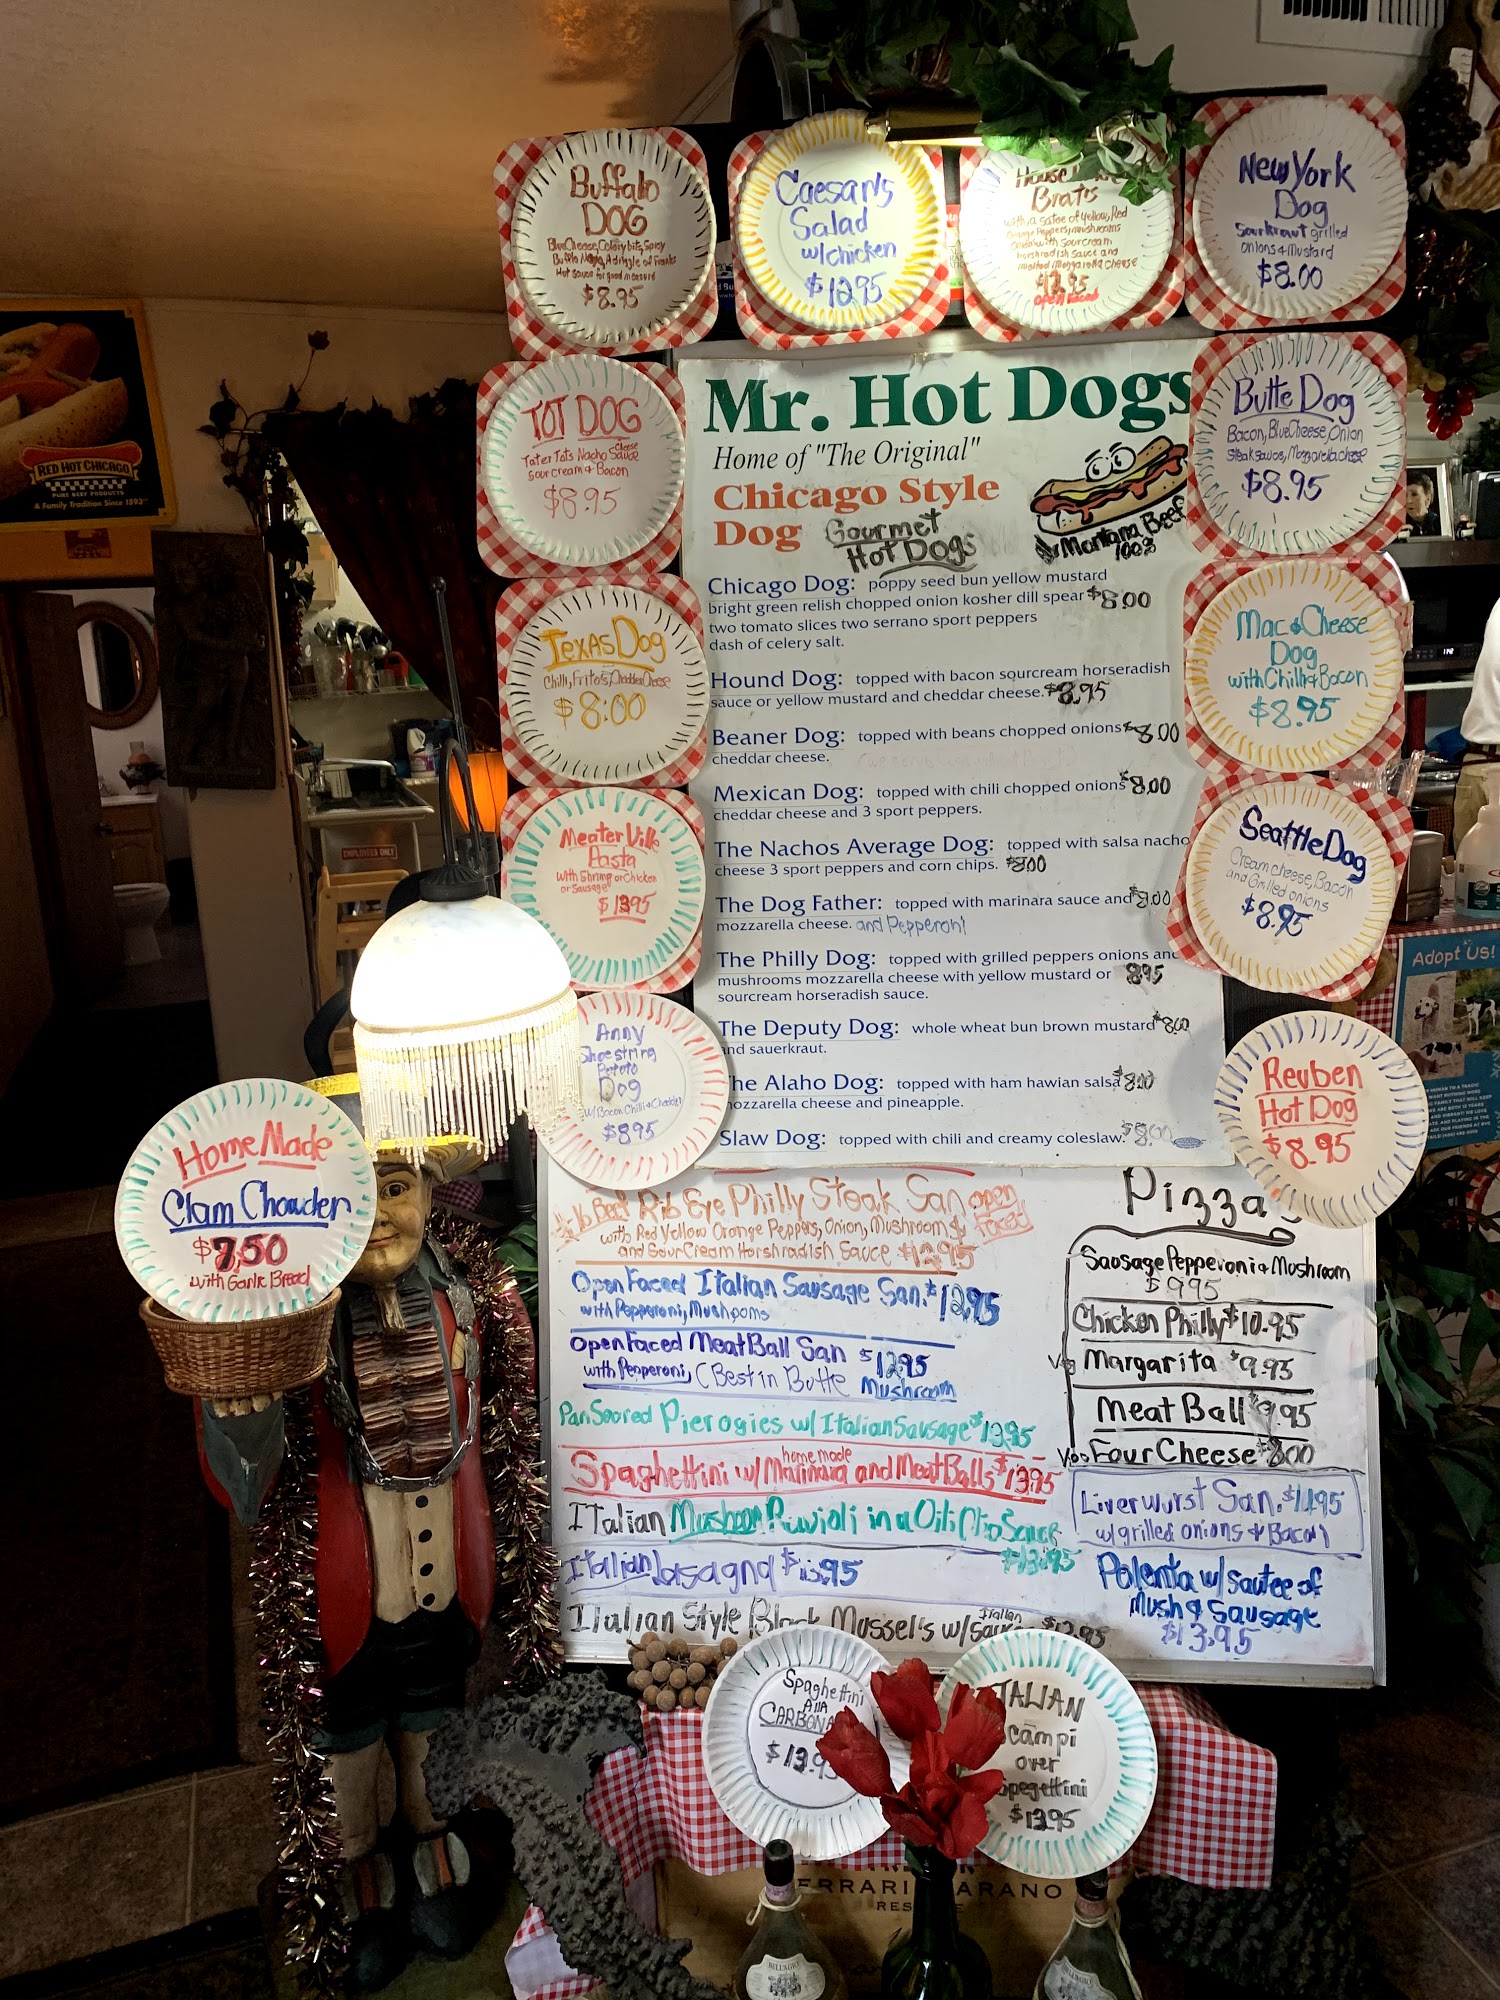 Buffalo
DOG
BlueCheese, Celery bits, Spicy
Buffalo Mayo, A drizzle of Franks
Hot sauce for good measure
$8.95
Caesar's
Salad
w/chicken
$12.95
House
Brat's
with a satee of Yellow, Red
Orange Peppers, mushrooms
onion with sour cream
horshradish sauce and
melted Mozzarella cheese
$12.95
open faced
New York
Dog
Sourkraut grilled
onions & Mustard
$8.00
TOT DOG
Tater Tots Nacho Cheese Sauce
sour cream & Bacon
$8.95
Texas Dog
Chilli, Frito's, Cheddar Cheese
$8.00
Meater Ville
Pasta
with Shrimp or Chicken
or Sausage
$13.95
Anny
Shoestring
Potato
Dog
w/Bacon Chilli & Cheddar
$8.95
Home Made
Clam Chowder
$7.50
with Garlic Bread
RED HOT CHICAGO
PURE BEEF PRODUCTS
A Family Tradition Since 1893
EMPLOYEES ONLY
Mr. Hot Dogs
Home of "The Original"
Chicago Style
Dog Gourmet
Hot Dogs
Montana Beef
100%
Chicago Dog: poppy seed bun yellow mustard
bright green relish chopped onion kosher dill spear $8.00
two tomato slices two serrano sport peppers
dash of celery salt.
Hound Dog: topped with bacon sourcream horseradish
sauce or yellow mustard and cheddar cheese. $8.95
Beaner Dog: topped with beans chopped onions $8.00
cheddar cheese.
Mexican Dog: topped with chili chopped onions $8.00
cheddar cheese and 3 sport peppers.
The Nachos Average Dog: topped with salsa nacho
cheese 3 sport peppers and corn chips. $8.00
The Dog Father: topped with marinara sauce and $8.00
mozzarella cheese. and Pepperoni
The Philly Dog: topped with grilled peppers onions and
mushrooms mozzarella cheese with yellow mustard or 8.95
sourcream horseradish sauce.
The Deputy Dog: whole wheat bun brown mustard $8.00
and sauerkraut.
The Alaho Dog: topped with ham hawian salsa $8.00
mozzarella cheese and pineapple.
Slaw Dog: topped with chili and creamy coleslaw. $8.00
Butte Dog
Bacon, BlueCheese, Onion
steak sauce, Mozzarella cheese
$8.95
Mac & Cheese
Dog
with Chilli & Bacon
$8.95
Seattle Dog
Cream cheese, Bacon
and Grilled onions
$8.95
Reuben
Hot Dog
$8.95
Adopt Us!
Beef Rib Eye Philly Steak San. open
faced
with Red Yellow Orange Peppers, Onion, Mushroom &
and Sour Cream Horshradish Sauce $12.95
Open Faced Italian Sausage San. $12.95
with Pepperoni, Mushooms
Open Faced MeatBall San $12.95
with Pepperoni, (Best in Butte Mushroom
Pan Seared Pierogies w/ Italian Sausage $13.95
Spaghettini w/ homemade Marinara and MeatBalls $13.95
Italian Mushroom Ravioli in a
$13.95
Italian lasagna $13.95
Italian Style Black Mussel's w/ Italian
$12.95
Pizza
Sausage Pepperoni & Mushroom
$9.95
Chicken Philly $10.95
Margarita $9.95
Meat Ball $9.95
Four Cheese $8.00
Liverwurst San. $11.95
w/grilled onions & Bacon
Polenta w/ sautee of
Mush & Sausage
$13.95
Spaghettini
Alla
CARBONA
$13.9
ITALIAN
Scampi
over
Spegettini
$13.95
ERRARI ARANO
RES
BELLAGIO